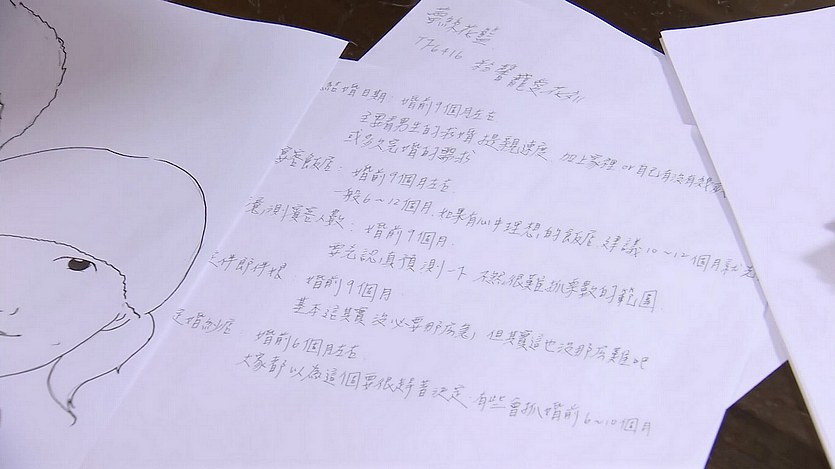 結婚日期：婚前9個月左右
主要看男生的求婚 提親速度 加上家裡 or 自己有沒有
或多久完婚的需求
宴客飯店：婚前9個月左右
一般6~12個月.如果有心中理想的飯店 建議10~12個月就
預測賓客人數：婚前9個月.
要先認真預測一下 不然很難抓桌數的範圍
婚前9個月
基本這其實沒必要那麼急，但其實這也沒那麼難吧
婚前6個月左右
大家都以為這個要很趕著決定 有些會抓婚前6~10個月